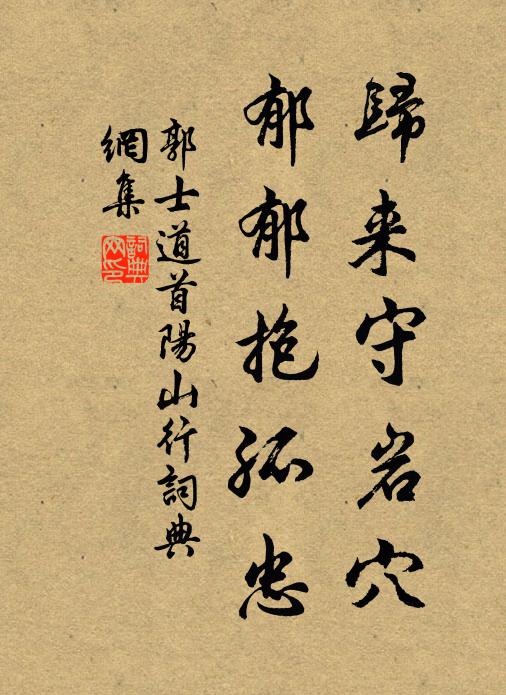 歸来守岩穴
郁郁抱孤忠
郭士道首陽山行詞典
網集
詞典网印